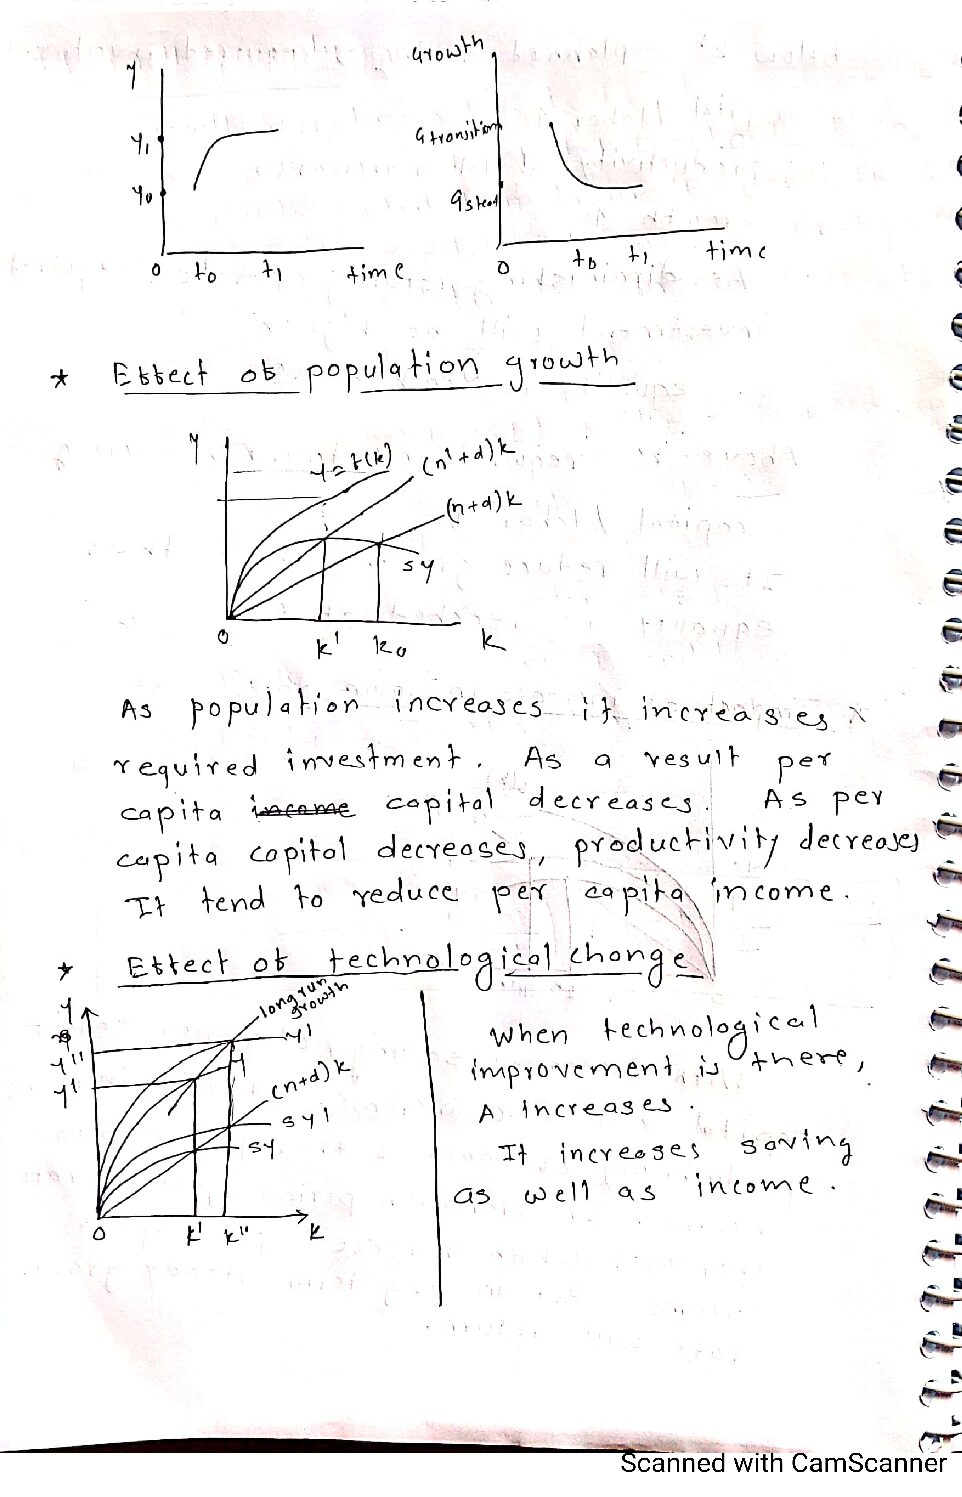 y
y₁
y₀
0 t₀ t₁ time
Growth
G transition
G stead
0 t₀ t₁ time
* Effect of population growth
y
y = f(k)
(n' + d) k
(n+d) k
sy
0 k' k₀ k
As population increases it increases
required investment. As a result per
capita income capital decreases. As per
capita capital decreases, productivity decreases
It tend to reduce per capita income.
* Effect of technological change
y
y''
y'
long run
growth
y'
y
(n+d) k
sy'
sy
0 k' k'' k
When technological
improvement is there,
A increases.
It increases saving
as well as income.
Scanned with CamScanner